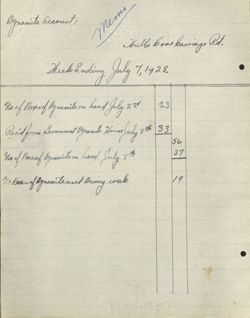 Dynamite Account:
Mems
Carriage Rd.
Week Ending July 7, 1928.
No of Boxes of Dynamite on hand July 2nd 23
Rec'd from Government Dynamite House July 4th 33
56
No of Boxes of Dynamite on hand July 7th 37
" Boxes of Dynamite used During week 19